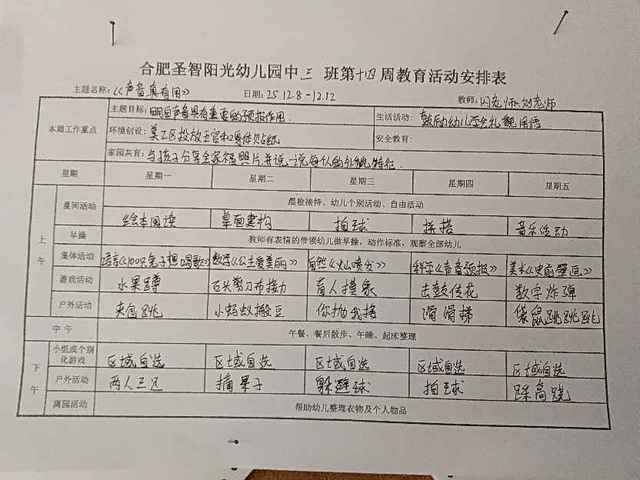 合肥圣智阳光幼儿园中三班第十四周教育活动安排表
主题名称：《声音真有用》 日期：25.12.8-12.12 教师：闪老师 刘老师
本周工作重点
主题目标：明白声音具有重要的预报作用.
生活活动：鼓励幼儿
环境创设：美工区投放
安全教育：
家园共育：与孩子分享全家福照片并说一说每个人的外貌特征.
星期 星期一 星期二 星期三 星期四 星期五
上午
晨间活动 晨检接待、幼儿个别活动、自由活动
绘本阅读 桌面建构 拍球 音乐律动
早操 教师有表情的带领幼儿做早操，动作标准、观察全部幼儿
集体活动 语言《100只兔子想唱歌》 数学 自然《火山喷发》 科学《声音预报》 美术
游戏活动 水果蹲 石头剪刀布接力 盲人摸象 击鼓传花 数字炸弹
户外活动 夹包跳 小蚂蚁搬豆 你抛我接 滑滑梯 袋鼠跳跳跳
中午 午餐、餐后散步、午睡、起床整理
下午
小组或个别化游戏 区域自选 区域自选 区域自选 区域自选 区域自选
户外活动 两人三足 摘果子 躲避球 拍球 踩高跷
离园活动 帮助幼儿整理衣物及个人物品